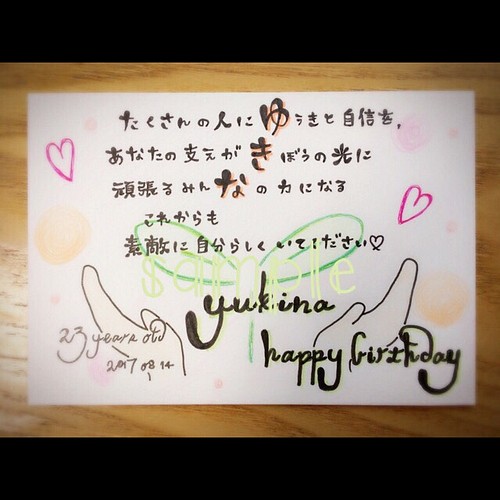 たくさんの人にゆうきと自信を,
あなたの支えがきぼうの光に
頑張るみんなの力になる
これからも
素敵に自分らしくいてください♡
sample
yukina
23 years old
2017 08 14
happy birthday